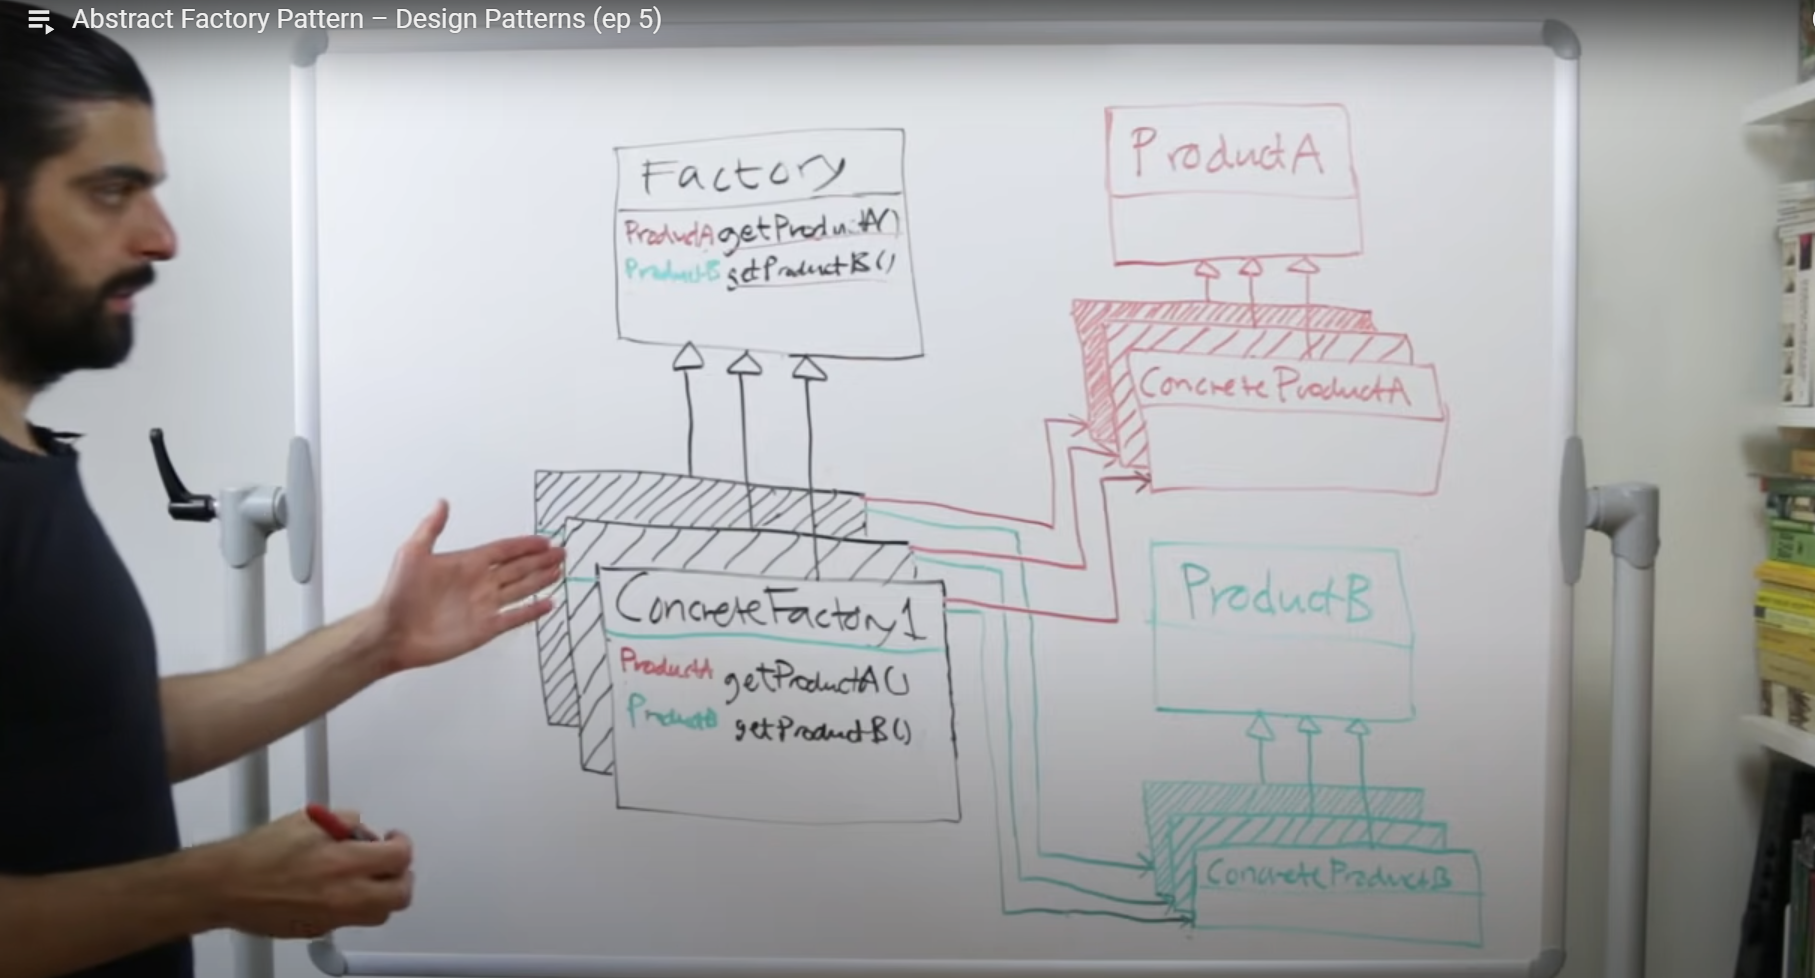 Abstract Factory Pattern – Design Patterns (ep 5)
Factory
ProductA getProductA()
ProductB getProductB()
ConcreteFactory1
ProductA getProductA()
ProductB getProductB()
ProductA
ConcreteProductA
ProductB
ConcreteProductB